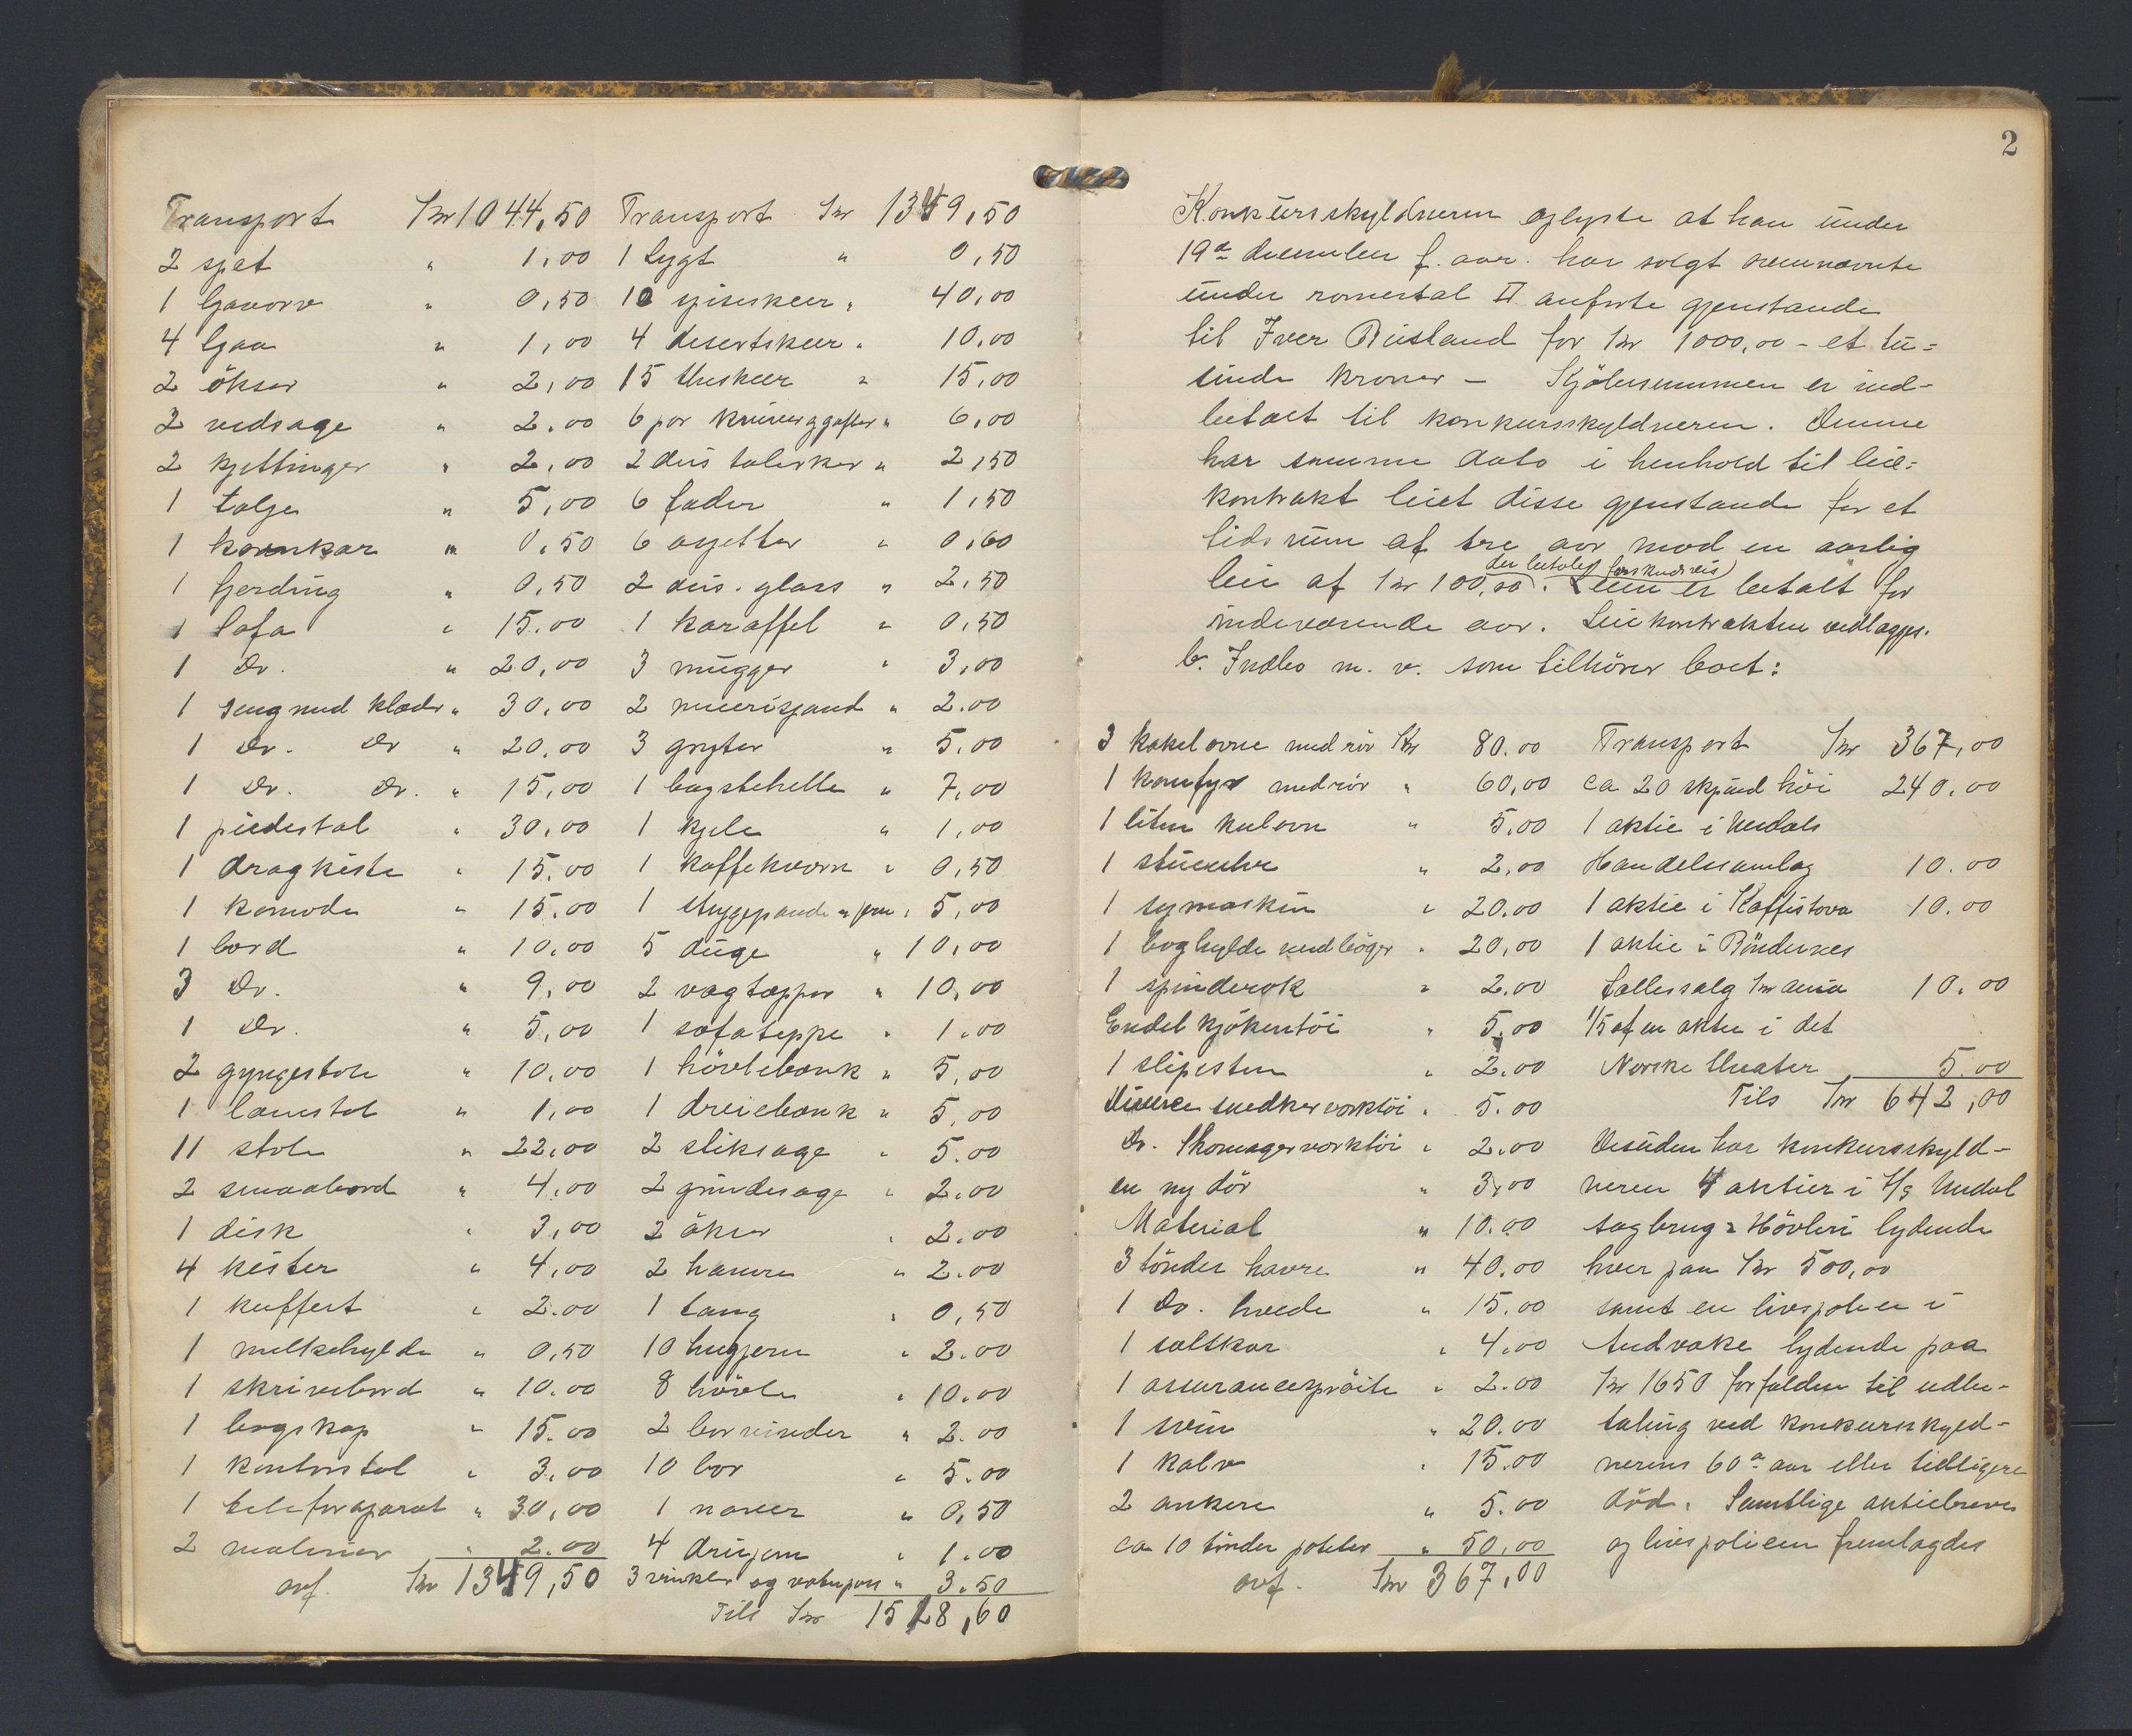 Transport Kr 1044,50
2 spet " 1,00
1 ljaaorv " 0,50
4 ljaa " 1,00
2 økser " 2,00
2 vedsage " 2,00
2 kjettinger " 2,00
1 talje " 5,00
1 kornkar " 0,50
1 fjerding " 0,50
1 Sofa " 15,00
1 Do. " 20,00
1 seng med klæder " 30,00
1 Do. Do " 20,00
1 Do. Do. " 15,00
1 piedestal " 30,00
1 dragkiste " 15,00
1 komode " 15,00
1 bord " 10,00
3 Do. " 9,00
1 Do. " 5,00
2 gyngestole " 10,00
1 lænestol " 1,00
11 stole " 22,00
2 smaabord " 4,00
1 disk " 3,00
4 kister " 4,00
1 kuffert " 2.00
1 melkehylde " 0,50
1 skrivebord " 10.00
1 bogskap " 15.00
1 kontorstol " 3,00
1 telefonaparat " 30,00
2 malerier " 2.00
ovf. Kr 1349,50
Transport Kr 1349,50
1 lygt " 0,50
10 spiseskeer " 40,00
4 desertskeer " 10,00
15 theskeer " 15,00
6 par kniver og gafler " 6,00
2 dus talerker " 2,50
6 fader " 1,50
6 asjetter " 0,60
2 dus. glass " 2,50
1 karaffel " 0,50
3 mugger " 3,00
2 messingspand " 2.00
3 gryter " 5,00
1 bagstehelle " 7,00
1 kjele " 1,00
1 kaffekværn " 0,50
1 " 5,00
5 duge " 10,00
2 vægtæpper " 10,00
1 sofateppe " 1.00
1 høvlebænk " 5,00
1 dreiebænk " 5,00
2 stiksage " 5.00
2 grindesage " 2.00
2 økser " 2.00
2 hamre " 2.00
1 tang " 0,50
10 hugjern " 2.00
8 høvle " 10.00
2 borvinder " 2.00
10 bor " 5.00
1 naver " 0,50
4 dreijern " 1.00
3 vinkler og vaterpas " 3.50
Tils Kr 1528,60
2
Konkursskyldneren oplyste at han under
19de december f. aar. har solgt ovennævnte
under romertal II anførte gjenstande
til Iver Birkeland for Kr 1000,00 – et tu=
sinde kroner – Kjøbesummen er ind-
betalt til konkursskyldneren. Denne
har samme dato i henhold til leie=
kontrakt leiet disse gjenstande for et
tidsrum af tre aar mod en aarlig
der betales forskudsvis
leie af Kr 100,00. Leien er betalt for
indeværende aar. Leiekontrakten vedlægges.
b. Indbo m. v. som tilhører boet:
3 kakelovne med rør Kr 80.00
1 komfyr med rør " 60,00
1 liten kulovn " 5.00
1 stueuhr " 2,00
1 symaskin " 20.00
1 boghylde med bøger " 20,00
1 spinderok " 2.00
Endel kjøkentøi " 5,00
1 slipesten " 2.00
Diverse snedkerværktøi " 5.00
Do. Skomagerværktøi " 2.00
en ny dør " 3,00
Material " 10.00
3 tønder havre " 40.00
1 Do. hvede " 15.00
1 saltskar " 4.00
1 assurancesprøite " 2.00
1 svin " 20.00
1 kalv " 15.00
2 ankere " 5.00
ca 10 tønder poteter " 50,00
ovf. Kr 367,00
Transport Kr 367,00
ca 20 skpund høi 240.00
1 aktie i Undals
Handelssamlag 10.00
1 aktie i Kaffistova 10.00
1 aktie i Bøndernes
Fællessalg Kr.ania 10.00
1/5 af en aktie i det
Norske theater 5.00
Tils Kr 642,00
Desuden har konkursskyld-
neren 4 aktier i A/S Undal
Sagbrug & Høvleri lydende
hver paa Kr 500,00
samt en livspolice i
Andvake lydende paa
Kr 1650 forfalden til udbe-
taling ved konkursskyld-
nerens 60de aar eller tidligere
død. Samtlige aktiebreve
og livspolicen fremlagdes